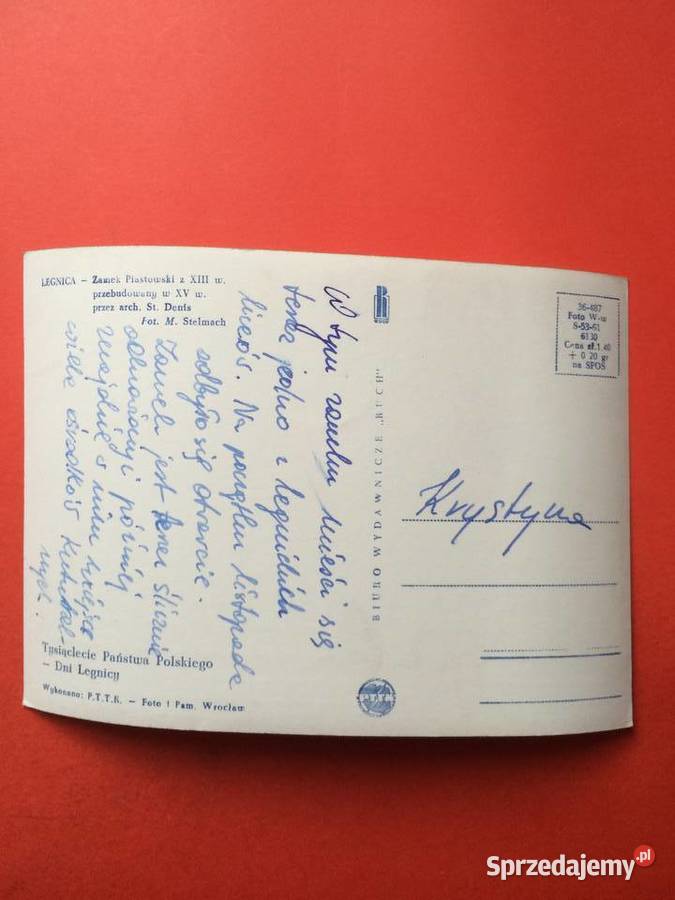 LEGNICA – Zamek Piastowski z XIII w.
przebudowany w XV w.
przez arch. St. Denis
Fot. M. Stelmach
W tym zamku mieści się
teraz jedno z legnickich
liceów. Na początku listopada
odbyło się otwarcie.
Zamek jest teraz ślicznie
odnowiony i później
znajdzie w nim miejsce
wiele ośrodków kultural-
nych.
Tysiąclecie Państwa Polskiego
– Dni Legnicy
Wykonano: P.T.T.K. – Foto i Pam. Wrocław
BIURO WYDAWNICZE „RUCH"
PTTK
36-487
Foto W-w
S-53-61
6130
Cena zł. 1.40
+ 0.20 gr
na SFOS
Krystyna
Sprzedajemy.pl